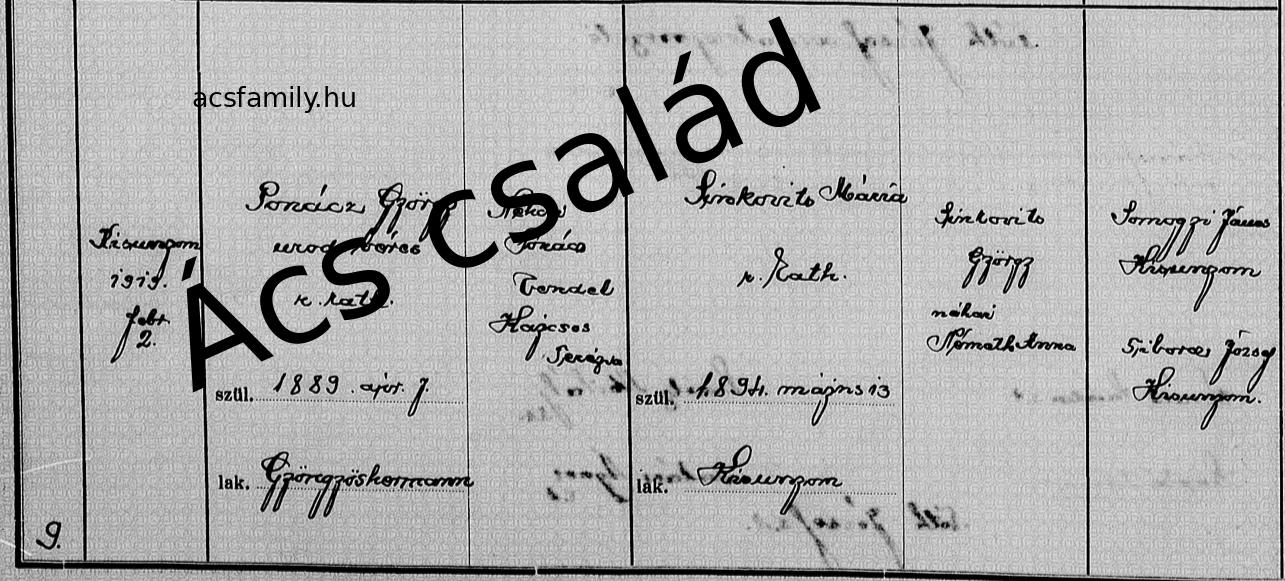 acsfamily.hu
Ács család
9.
Kisunyom
1919.
febr
2.
Ponácz György
r. kath.
szül. 1889. ápr. 7.
lak. Györgyöshermann
Néhai
Ponács
Vendel
Hajcsos
Sinkovits Mária
r. kath.
szül. 1894. május 13
lak. Kisunyom
Sinkovits
György
néhai
Németh Anna
Somogyi János
Kisunyom
Tiborcz József
Kisunyom.